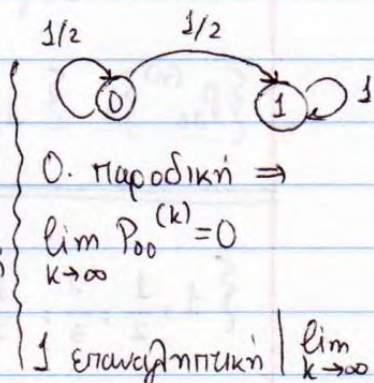 1/2 1/2
0 1 1
0. παροδική ⇒
lim P₀₀⁽ᵏ⁾ = 0
k→∞
1 επαναληπτική | lim
k→∞